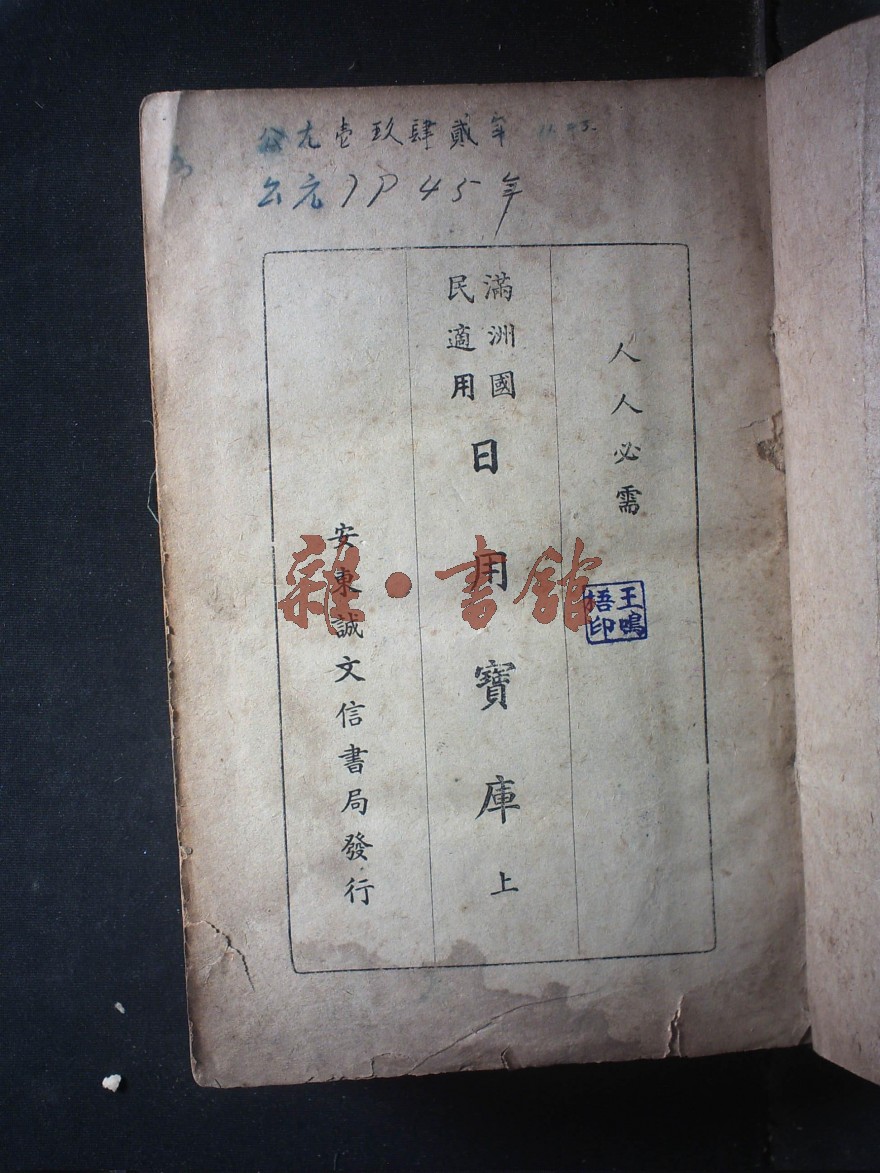 公元壹玖肆貳年
公元1945年
人人必需
滿洲國
民適用
日用寶庫上
安東誠文信書局發行
王鳴
梧印
雜·書館